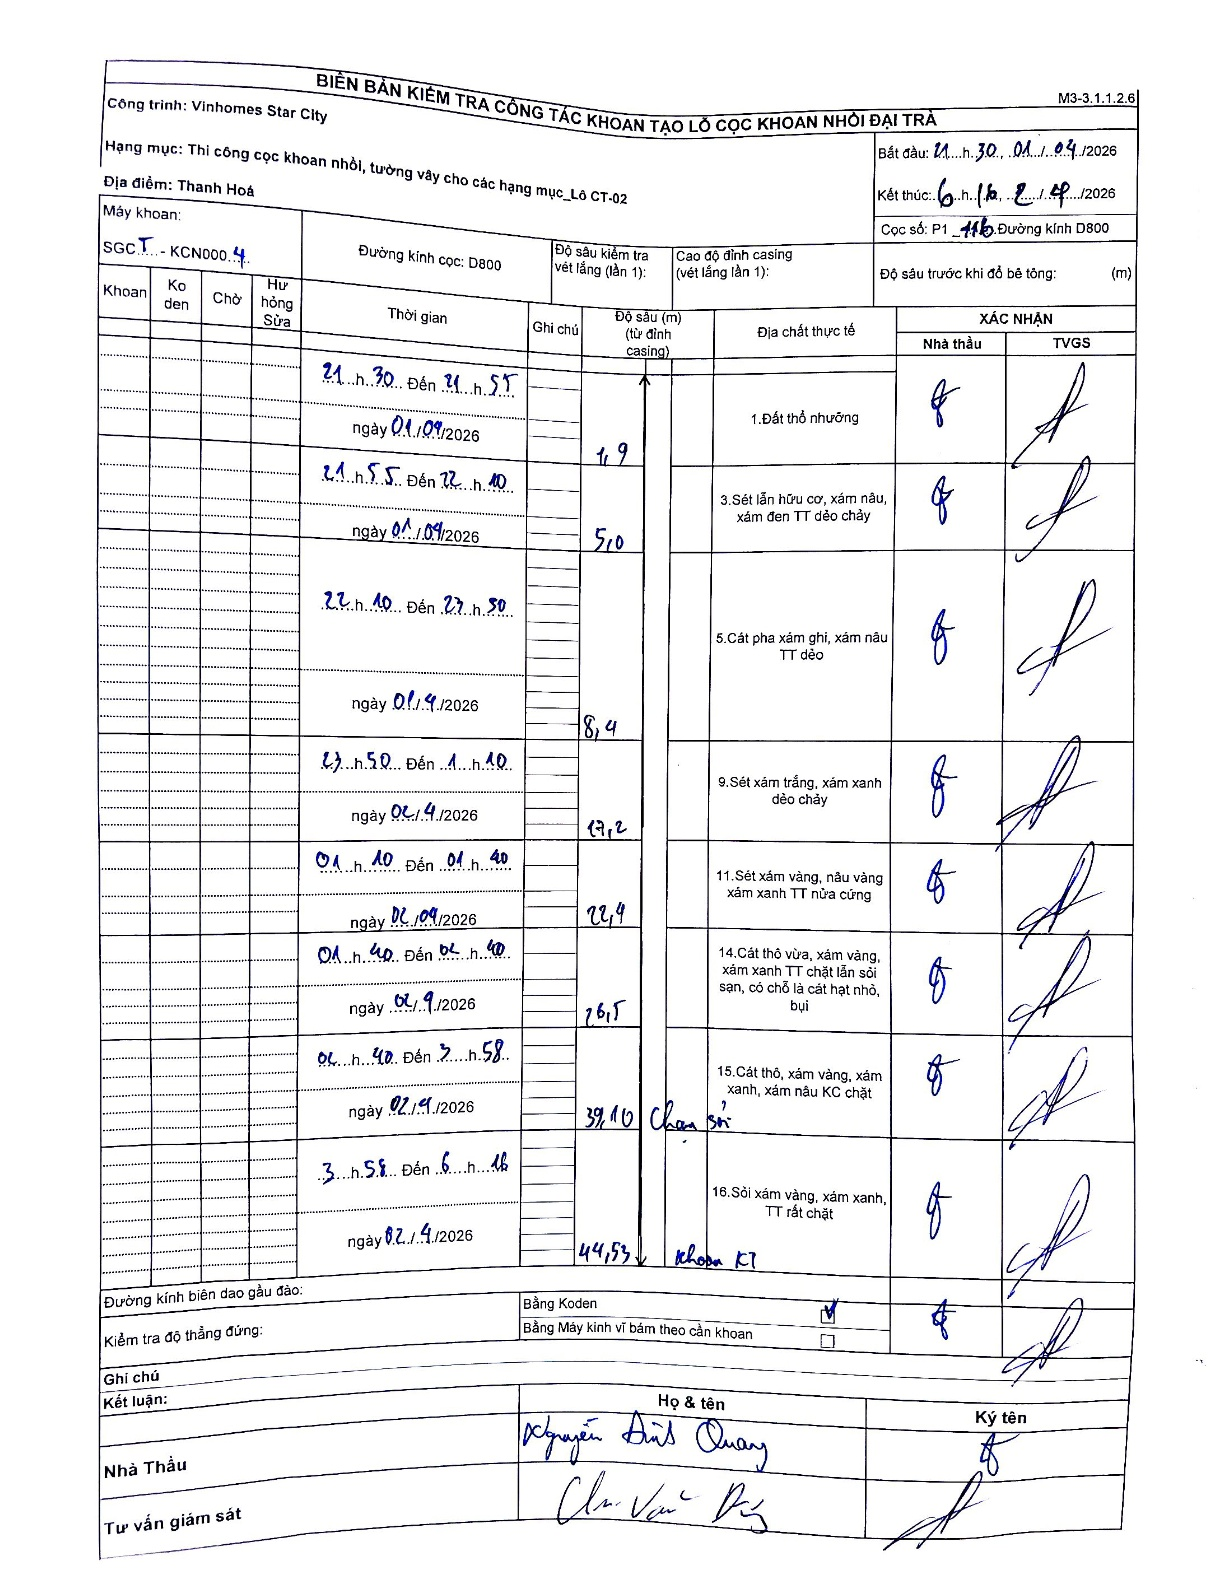 BIÊN BẢN KIỂM TRA CÔNG TÁC KHOAN TẠO LỖ CỌC KHOAN NHỒI ĐẠI TRÀ
M3-3.1.1.2.6
Công trình: Vinhomes Star City
Hạng mục: Thi công cọc khoan nhồi, tường vây cho các hạng mục_Lô CT-02
Địa điểm: Thanh Hoá
Bắt đầu: 21...h.30., .01../.04./2026
Kết thúc: 6..h.16., ..2../.4../2026
Cọc số: P1 _116.Đường kính D800
Máy khoan:
SGC.T.. - KCN000.4.
Đường kính cọc: D800
Độ sâu kiểm tra vét lắng (lần 1):
Cao độ đỉnh casing (vét lắng lần 1):
Độ sâu trước khi đổ bê tông: (m)
Khoan
Ko den
Chờ
Hư hỏng Sửa
Thời gian
Ghi chú
Độ sâu (m) (từ đỉnh casing)
Địa chất thực tế
XÁC NHẬN
Nhà thầu
TVGS
21...h.30.. Đến 21..h.55
ngày 01./04/2026
1,9
1.Đất thổ nhưỡng
21..h.55.. Đến 22...h.10.
ngày 01./04/2026
5,0
3.Sét lẫn hữu cơ, xám nâu, xám đen TT dẻo chảy
22..h.10... Đến .23..h.50..
ngày 01./.4./2026
8,4
5.Cát pha xám ghi, xám nâu TT dẻo
23...h.50... Đến ..1...h.10.
ngày 02./.4./2026
17,2
9.Sét xám trắng, xám xanh dẻo chảy
01..h..10.. Đến .01..h..40
ngày 02./04/2026
22,4
11.Sét xám vàng, nâu vàng xám xanh TT nửa cứng
01..h..40.. Đến 02..h..40.
ngày .02./.4./2026
26,5
14.Cát thô vừa, xám vàng, xám xanh TT chặt lẫn sỏi sạn, có chỗ là cát hạt nhỏ, bụi
02...h..40.. Đến 3....h.58..
ngày .02./.4./2026
39,10 Chạm sỏi
15.Cát thô, xám vàng, xám xanh, xám nâu KC chặt
.3...h.58... Đến ..6....h..16
ngày 02../.4./2026
44,53 Khoan KT
16.Sỏi xám vàng, xám xanh, TT rất chặt
Đường kính biên dao gầu đào:
Kiểm tra độ thẳng đứng:
Bằng Koden
Bằng Máy kinh vĩ bám theo cần khoan
Ghi chú
Kết luận:
Họ & tên
Ký tên
Nhà Thầu
Nguyễn Đình Quang
Tư vấn giám sát